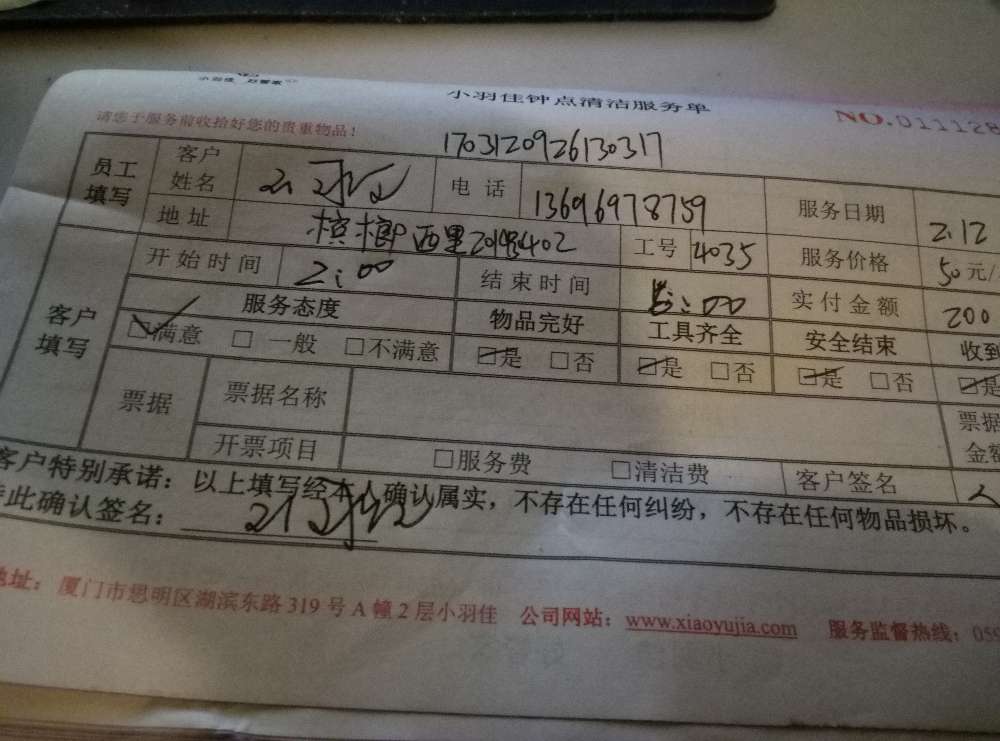 小羽佳钟点清洁服务单
NO.011128
请您于服务前收拾好您的贵重物品！
1703120926130317
员工填写 客户姓名 电话 13696978759 服务日期 2.12
地址 槟榔西里 402 工号 4035 服务价格 50元/
客户填写 开始时间 2:00 结束时间 :00 实付金额 200
服务态度 物品完好 工具齐全 安全结束 收到
☑满意 □一般 □不满意 ☑是 □否 ☑是 □否 ☑是 □否 ☑是
票据 票据名称 票据金额
开票项目 □服务费 □清洁费 客户签名
客户特别承诺：以上填写经本人确认属实，不存在任何纠纷，不存在任何物品损坏。
特此确认签名：
地址：厦门市思明区湖滨东路319号A幢2层小羽佳 公司网站：www.xiaoyujia.com 服务监督热线：059